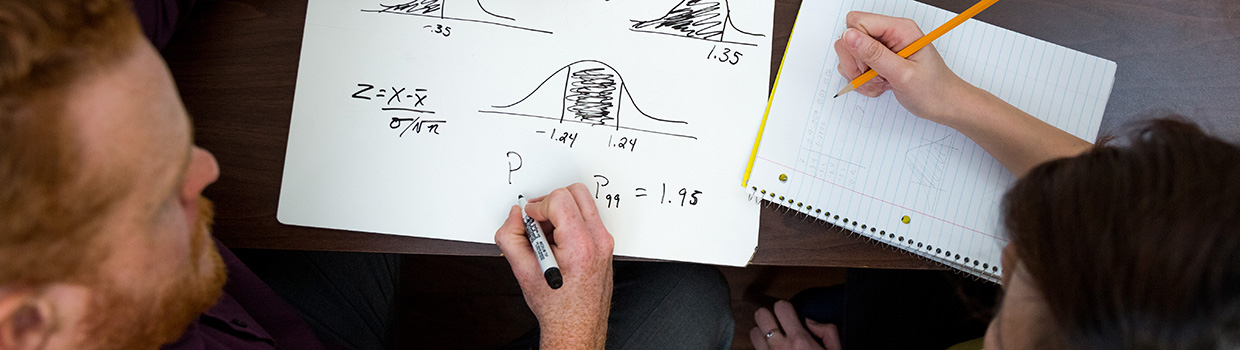 -.35
1.35
Z = X - x̄
σ/√n
-1.24 1.24
P
P99 = 1.95